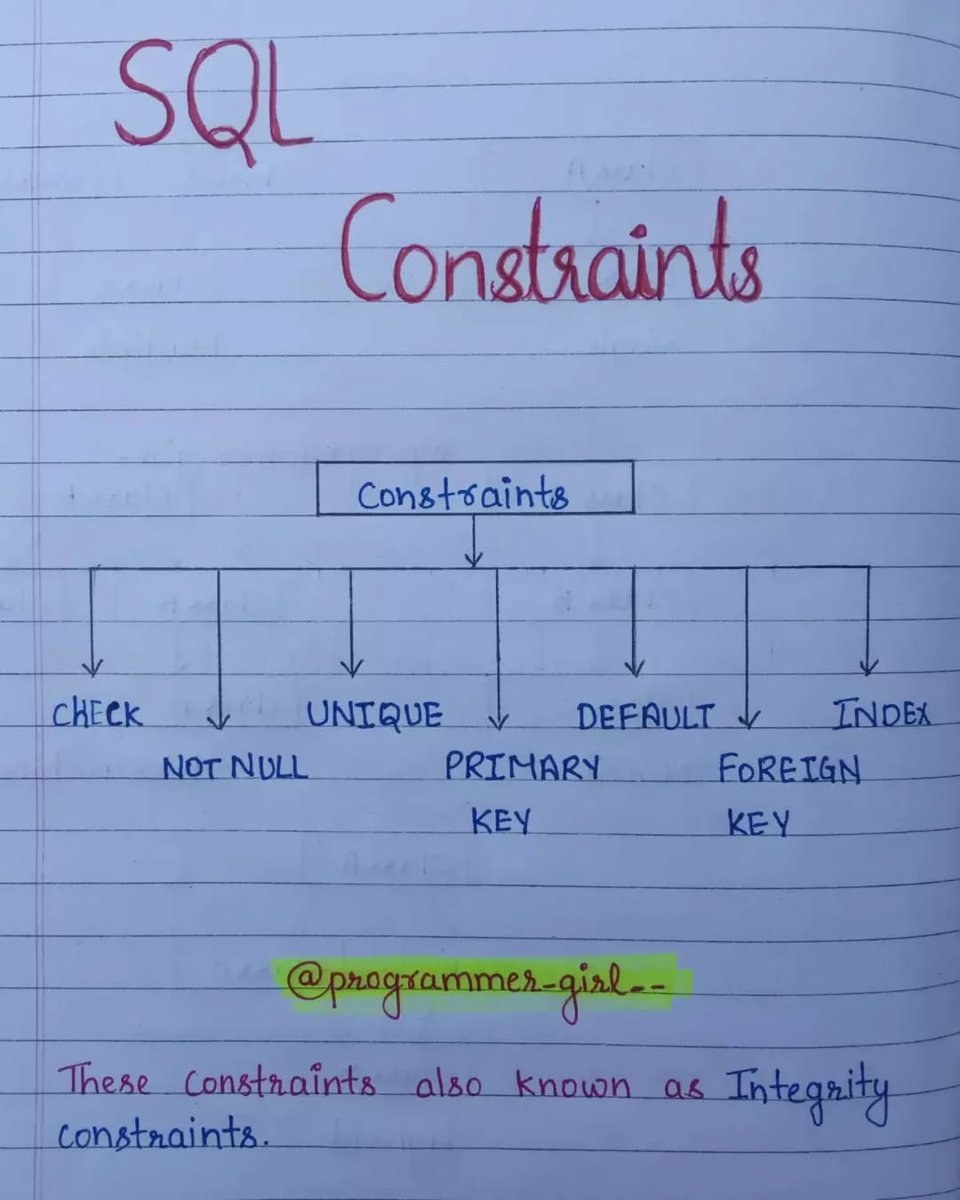 SQL
Constraints
Constraints
CHECK
NOT NULL
UNIQUE
PRIMARY
KEY
DEFAULT
FOREIGN
KEY
INDEX
@programmer_girl__
These constraints also known as Integrity
constraints.